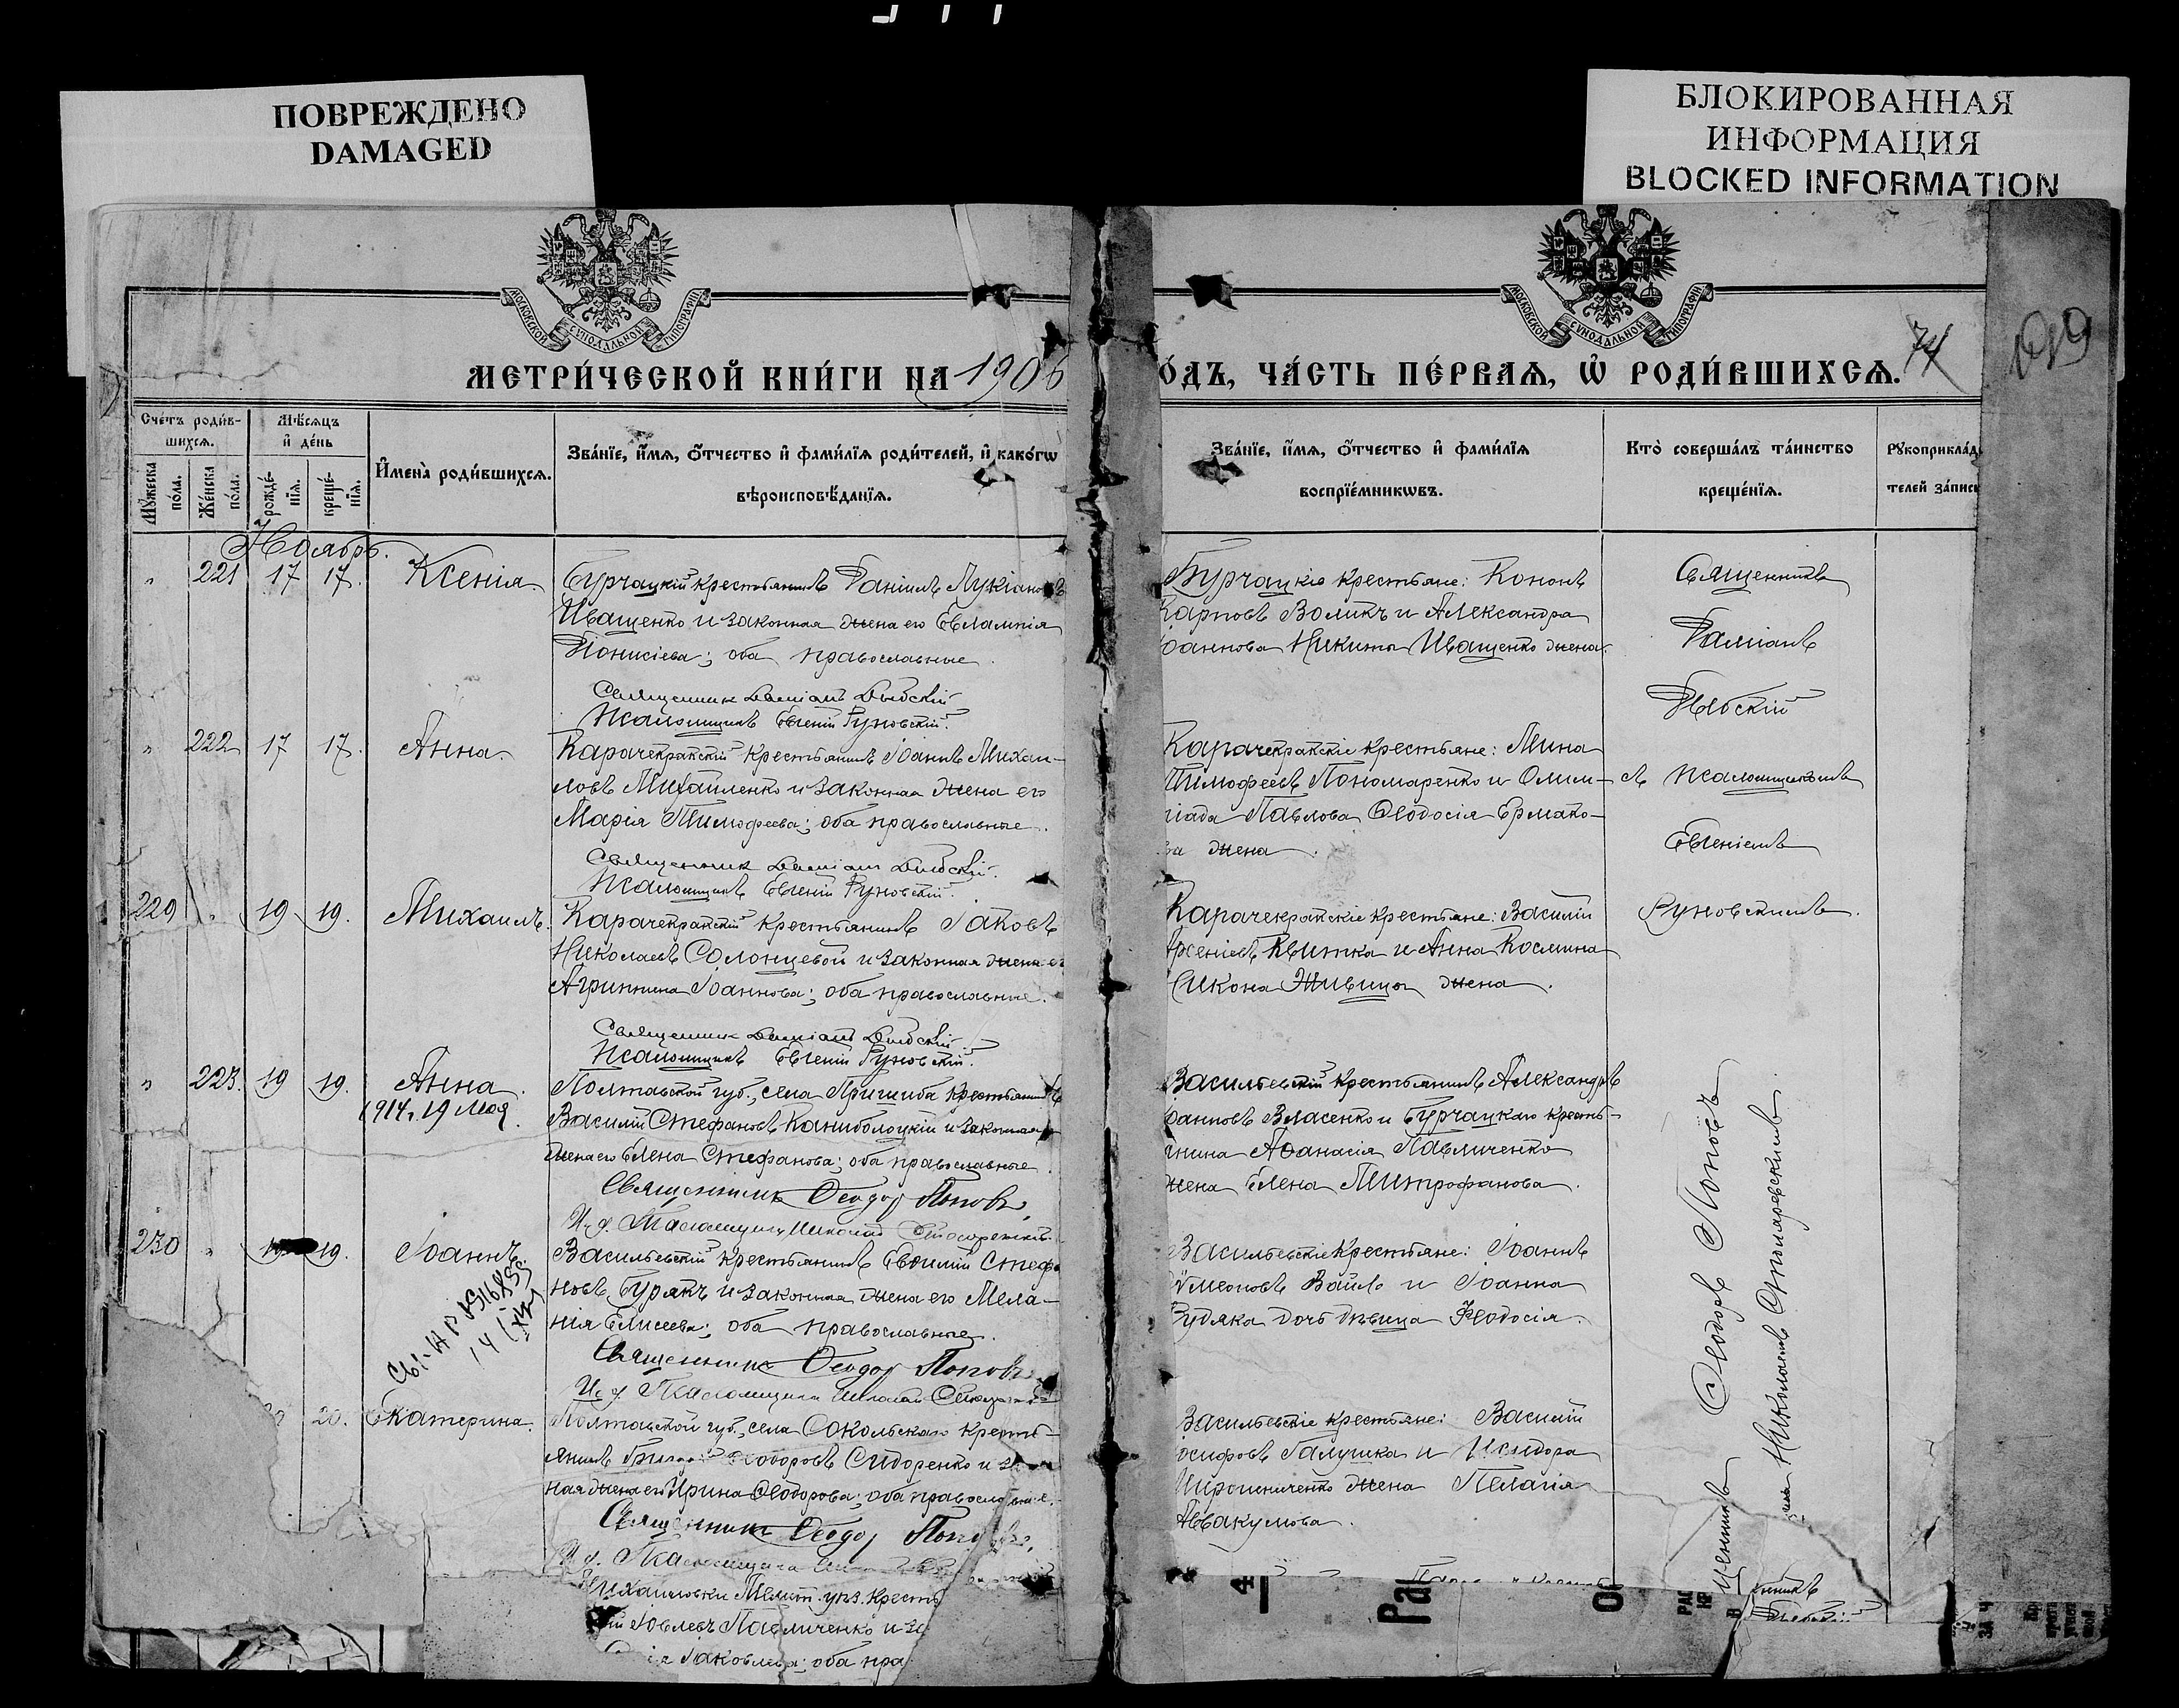 ПОВРЕЖДЕНО
DAMAGED
БЛОКИРОВАННАЯ
ИНФОРМАЦИЯ
BLOCKED INFORMATION
МОСКОВСКОЙ СѴНОДАЛЬНОЙ ТИПОГРАФІИ
МОСКОВСКОЙ СѴНОДАЛЬНОЙ ТИПОГРАФІИ
МЕТРИ́ЧЕСКОЙ КНИ́ГИ НА 1906
О́ДЪ, ЧА́СТЬ ПЕ́РВАЯ, Ѡ РОДИ́ВШИХСЯ. 74
Сче́тъ роди́в-
шихся.
Мѣ́сяцъ
и де́нь
Му́жеска по́ла.
Же́нска по́ла.
рожде́-нїя.
креще́-нїя.
Имена̀ роди́вшихся.
Зва́нїе, и́мя, о́тчество и фами́лїя роди́телей, и како́гѡ
вѣроисповѣ́данїя.
Зва́нїе, и́мя, о́тчество и фами́лїя
воспрїе́мникѡвъ.
Кто̀ соверша́лъ та́инство
креще́нїя.
Рꙋкоприкла́д
телей за́писи
Ноябрь.
" 221 17 17. Ксенія
Бурчацкій крестьянинъ Даніилъ Лукіановъ
Иващенко и законная жена его Евлампія
Діонисіева; оба православные.
Священникъ Даміанъ
Псаломщикъ Евгеній Руновскій.
Бурчацкіе крестьяне: Кононъ
Карповъ Воликъ и Александра
оаннова Никиты Иващенко жена.
Священникъ
Даміанъ
съ псаломщикомъ
Евгеніемъ
Руновскимъ.
" 222 17 17. Анна.
Карачекракскій крестьянинъ Іоаннъ Михаи-
ловъ Михайленко и законная жена его
Марія Тимофеева; оба православные.
Священникъ Даміанъ
Псаломщикъ Евгеній Руновскій.
Карачекракскіе крестьяне: Мина
Тимофеевъ Пономаренко и Олим-
піада Павлова Ѳеодосія Ермако-
ва жена.
229 " 19 19. Михаилъ.
Карачекракскій крестьянинъ Іаковъ
Николаевъ Солонцевой и законная жена ег
Агриппина Іоаннова; оба православные.
Священникъ Даміанъ
Псаломщикъ Евгеній Руновскій.
Карачекракскіе крестьяне: Василій
Арсеніевъ Квитка и Анна Космина
Сикона Живицы жена.
" 223. 19 19. Анна.
1914 г. 19 Мая.
Полтавской губ., села Пришиба крестьянинъ
Василій Стефановъ и законная
жена его Елена Стефанова; оба православные.
Священникъ Ѳеодоръ Поповъ,
И. д. Псаломщика Николай
Васильевскій крестьянинъ Александръ
оанновъ Власенко и Бурчацкаго кресть-
янина Аѳанасія Павличенко
жена Елена Митрофанова.
230 " 19. Іоаннъ.
Васильевскій крестьянинъ Евѳимій Стефа
новъ Бурякъ и законная жена его Мела-
нія Елисеева; оба православные.
Священникъ Ѳеодоръ Поповъ
И. д. Псаломщика Николай
Васильевскіе крестьяне: Іоаннъ
и Іоанна
дочь дѣвица Ѳеодосія.
20. Екатерина.
Полтавской губ., села Сокольскаго кресть-
янинъ Ѳеодоровъ Сидоренко и
ная жена его Ирина Ѳеодорова; оба православныя.
Священникъ Ѳеодоръ
И. д. Псаломщика
Васильевскіе крестьяне: Василій
осифовъ Галушка и Исидора
Мирошниченко жена Пелагія
Аввакумова.
Михайловки Мелит. уѣз. кресть
Павличенко и за
Іаковлева; оба пра
Ѳеодоръ Поповъ
Николаемъ